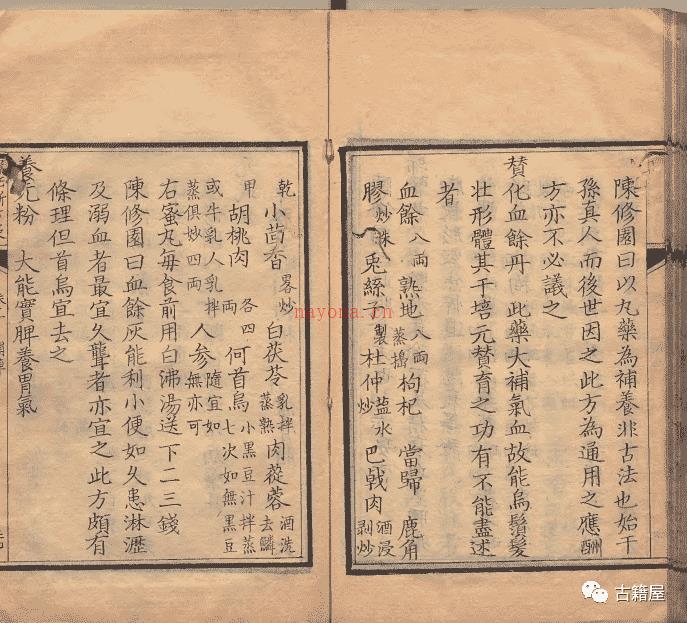 陳修園曰以丸藥為補養非古法也始于
孫真人而後世因之此方為通用之應酬
方亦不必議之
贊化血餘丹 此藥大補氣血故能烏鬚髮
壯形體其于培元贊育之功有不能盡述
者
血餘八兩 熟地八兩蒸搗 枸杞 當歸 鹿角
膠炒珠 兎絲子製 杜仲盐水炒 巴戟肉酒浸剥炒
乾 小茴香畧炒 白茯苓乳拌蒸熟 肉蓯蓉酒洗去鱗
甲 胡桃肉 各四兩 何首烏小黑豆汁拌蒸七次如無黑豆
或牛乳人乳拌蒸俱妙四兩 人參隨宜如無亦可
右蜜丸每食前用白沸湯送下二三錢
陳修園曰血餘灰能利小便如久患淋瀝
及溺血者最宜久聾者亦宜之此方頗有
條理但首烏宜去之
養元粉 大能實脾養胃氣
nayona.cn
古籍屋